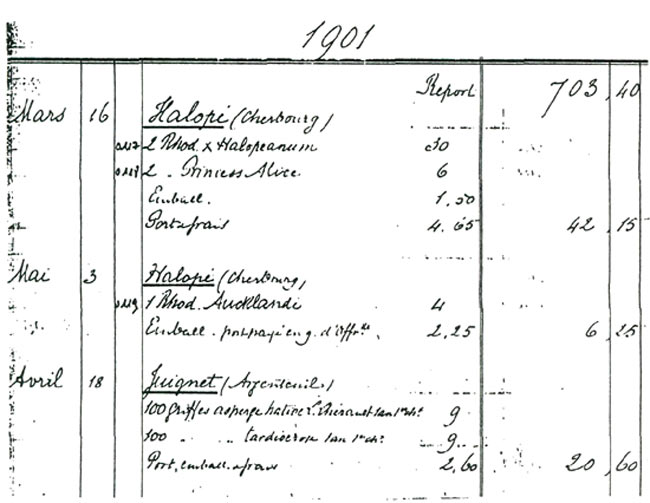 1901
Report 703,40
Mars 16 Halopé (Cherbourg)
0117 2 Rhod. x Halopeanum 30
0118 2 „ Princess Alice 6
Emball. 1,50
Port & frais 4,65 42,15
Mai 3 Halopé (Cherbourg)
0119 1 Rhod. Aucklandi 4
Emball. port payé en g. d'Off 2,25 6,25
Avril 18 Juignet (Argenteuil)
100 griffes asperge hative L. Lhérault 1 an 1er ch. 9
100 „ „ tardive rose 1 an 1er ch. 9
Port, emball. & frais 2,60 20,60